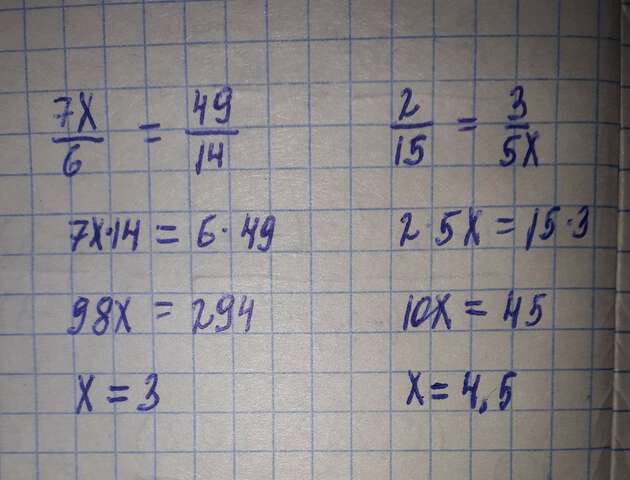 7x/6 = 49/14
7x·14 = 6·49
98x = 294
x = 3
2/15 = 3/5x
2·5x = 15·3
10x = 45
x = 4,5